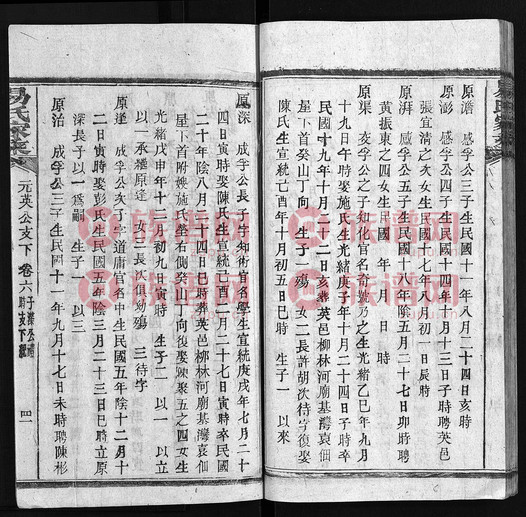 易氏家乘
原澹 咸孚公三子生民國十一年八月二十四日亥時
原澎 咸孚公四子生民國十四年十月十三日子時聘英邑
張宜清之次女生民國十七年八月初一日長時
原湃 咸孚公五子生民國十八年陰五月二十七日卯時聘
黃振東之四女生民國 年 月 日 時
原渠 亥孚公之子知化官名奇號乃之生光緒乙巳年九月
十九日午時娶施氏生光緒庚子年十月二十四日子時卒
民國十九年十月十二日亥葬英邑柳林河廟基灣哀佃
屋下首癸山丁向 生子一 殤 女二長許胡次待字復娶
陳氏生宣統己酉年十月初五日巳時 生子一 以來
原深 成孚公長子字知術官名學生宣統庚戌年七月二十
四日寅時娶陳氏生宣統二酉年八月二十七日寅時卒民國
二十年陰八月二十四日巳時葬英邑柳林河廟基灣哀佃
屋下首附嫂施氏塋右側癸山丁向復娶陳聚五之四女生
光緒戊申年十二月初九日寅時 生子二 以一 以立
以一承繼原達 女三長次俱幼殤 三待字
原達 成孚公次丁字道庸官名中生民國五年陰十二月十
二日寅時娶彭氏生民國五年陰三月二十三日巳時立原
深長子以一爲嗣
原治 成孚公三子生民國十一年九月十七日未時聘陳彬
易氏家乘 元英公支下 卷六 四一